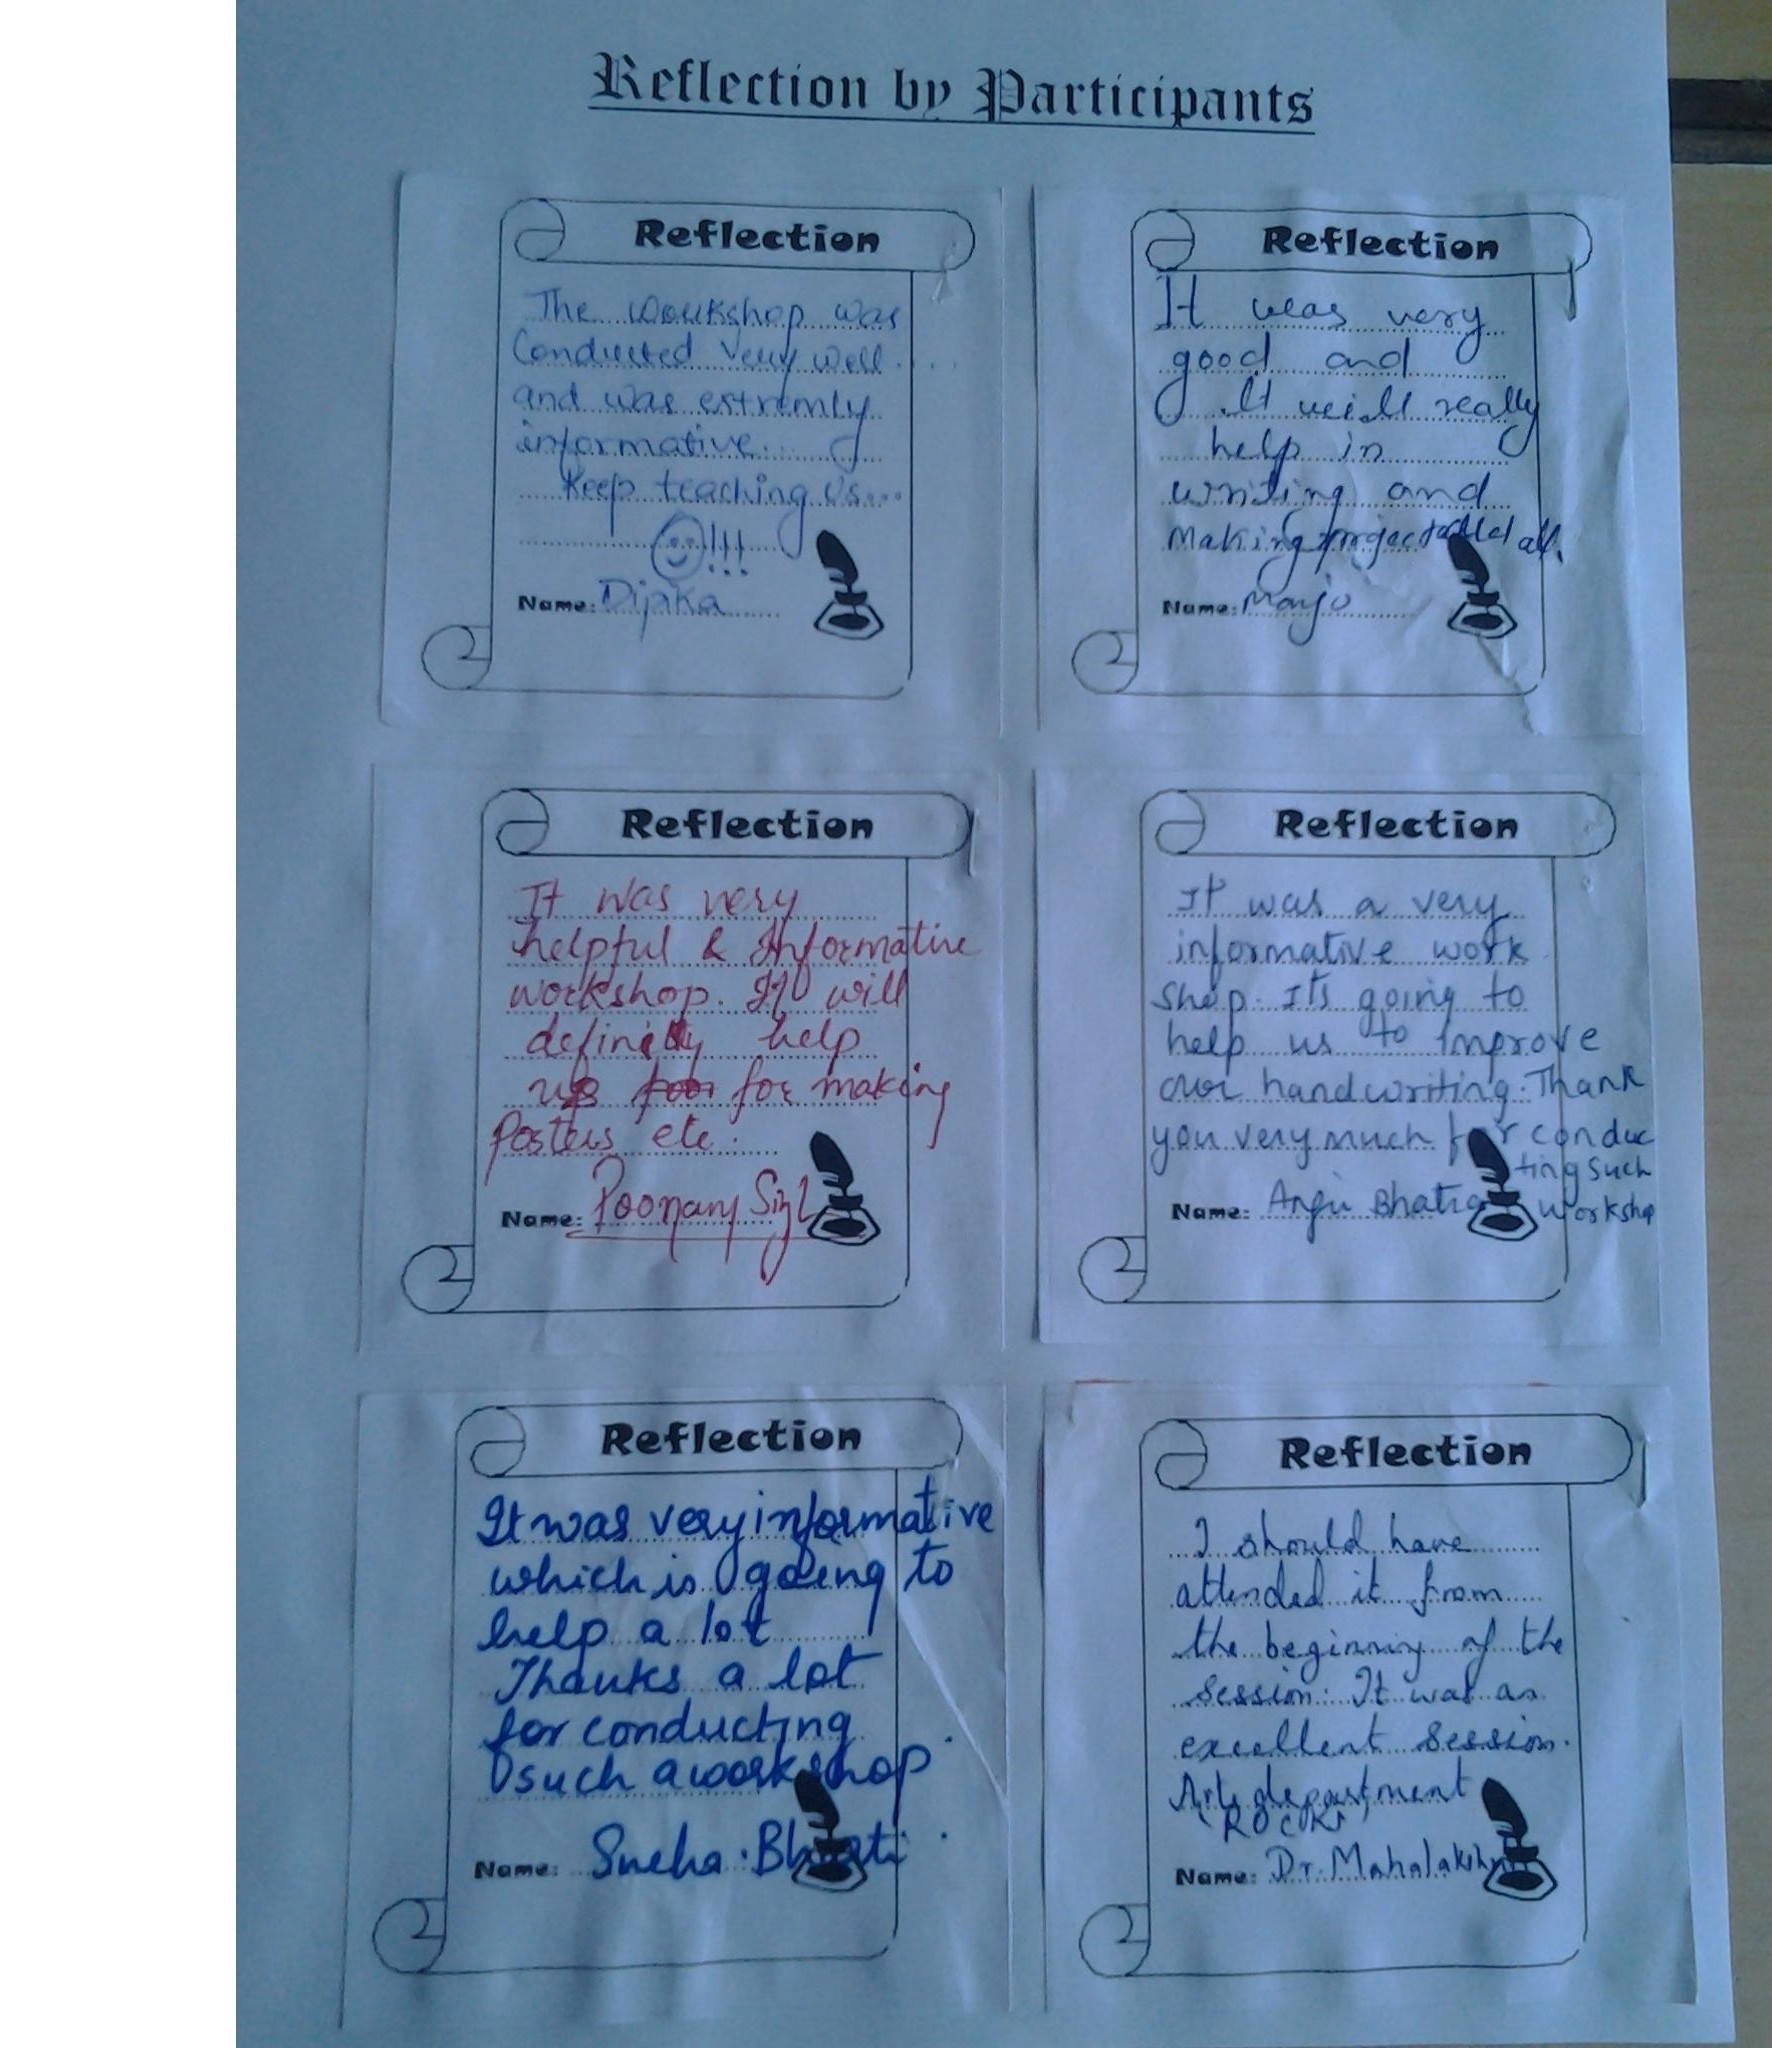 Reflection by Participants
Reflection
The workshop was
Conducted very well....
and was extremly
informative...
Keep teaching us...
!!!
Name: Dipika
Reflection
It was very
good and
It will really
help in
writing and
making project
Name: Manju
Reflection
It was very
helpful & Informative
workshop. It will
definitly help
us for making
Posters etc.
Name: Poonam
Reflection
It was a very
informative work
shop. It's going to
help us to improve
our handwriting. Thank
you very much for conduc
ting such
workshop
Name: Anju Bhatia
Reflection
It was very informative
which is going to
help a lot
Thanks a lot
for conducting
such a workshop.
Name: Sneha. Bhati
Reflection
I should have
attended it from
the beginning of the
session. It was an
excellent session.
Arts department
'ROCKS'
Name: Dr. Mahalakshmi